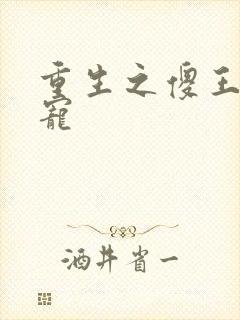 重生之傻王
寵
酒井省一